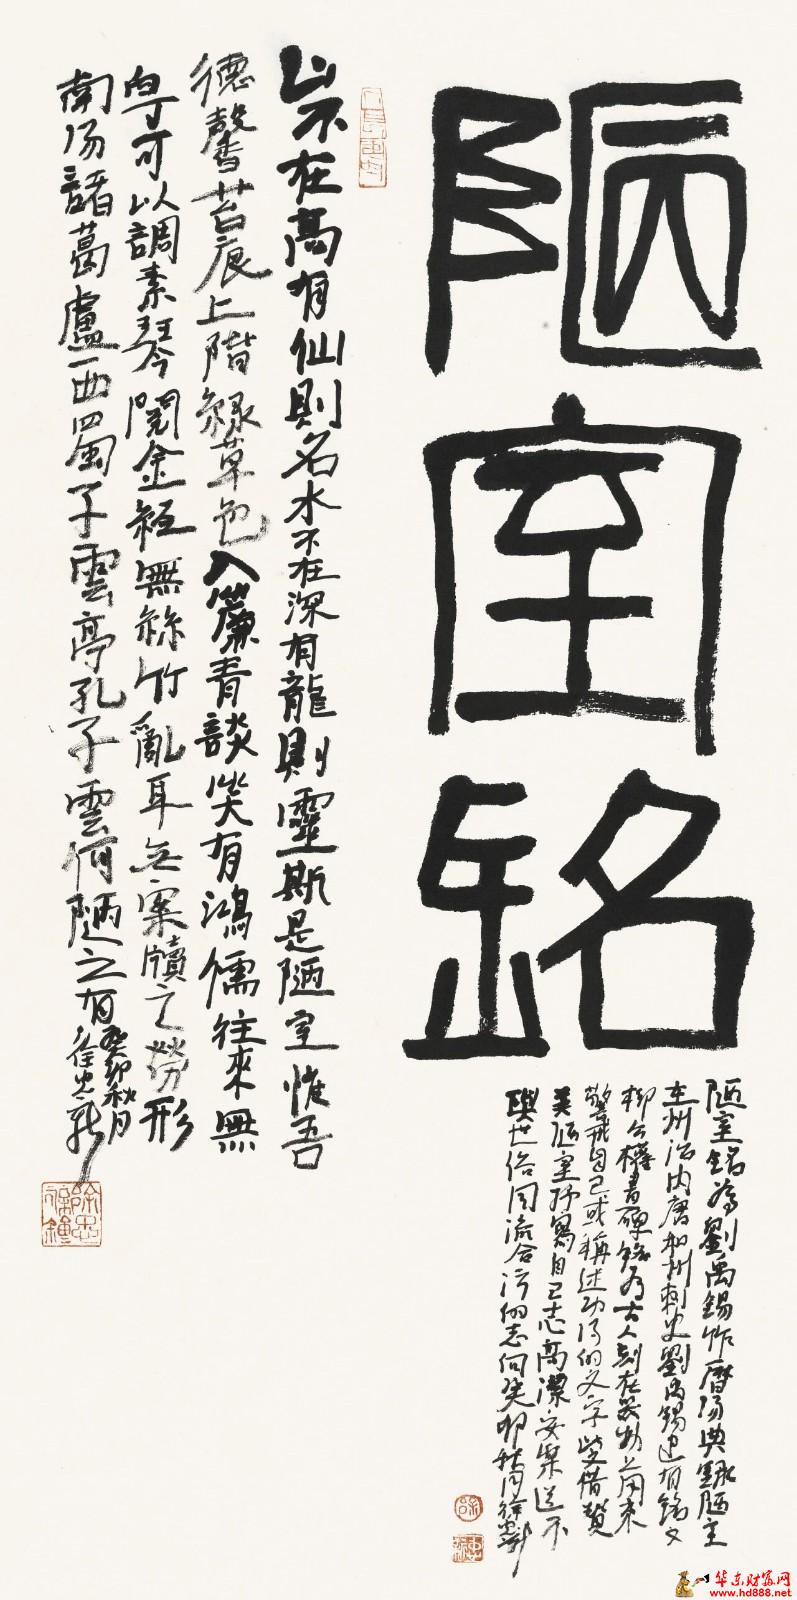 陋室銘
陋室銘為劉禹錫作曆陽典錄陋室
在州治内唐和州刺史劉禹錫建有銘文
柳公權書碑銘為古人刻在器物上用来
警戒自己或稱述功德的文字此文借贊
美陋室抒寫自己志高潔安樂道不
與世俗同流合污的志向癸卯秋月徐忠新
山不在高有仙則名水不在深有龍則靈斯是陋室惟吾
德馨香苔痕上階綠草色入簾青談笑有鴻儒往來無
白丁可以調素琴閱金經無絲竹亂耳無案牘之勞形
南陽諸葛盧西蜀子雲亭孔子雲何陋之有癸卯秋月
徐忠新
华东财富网
www.hd888.net